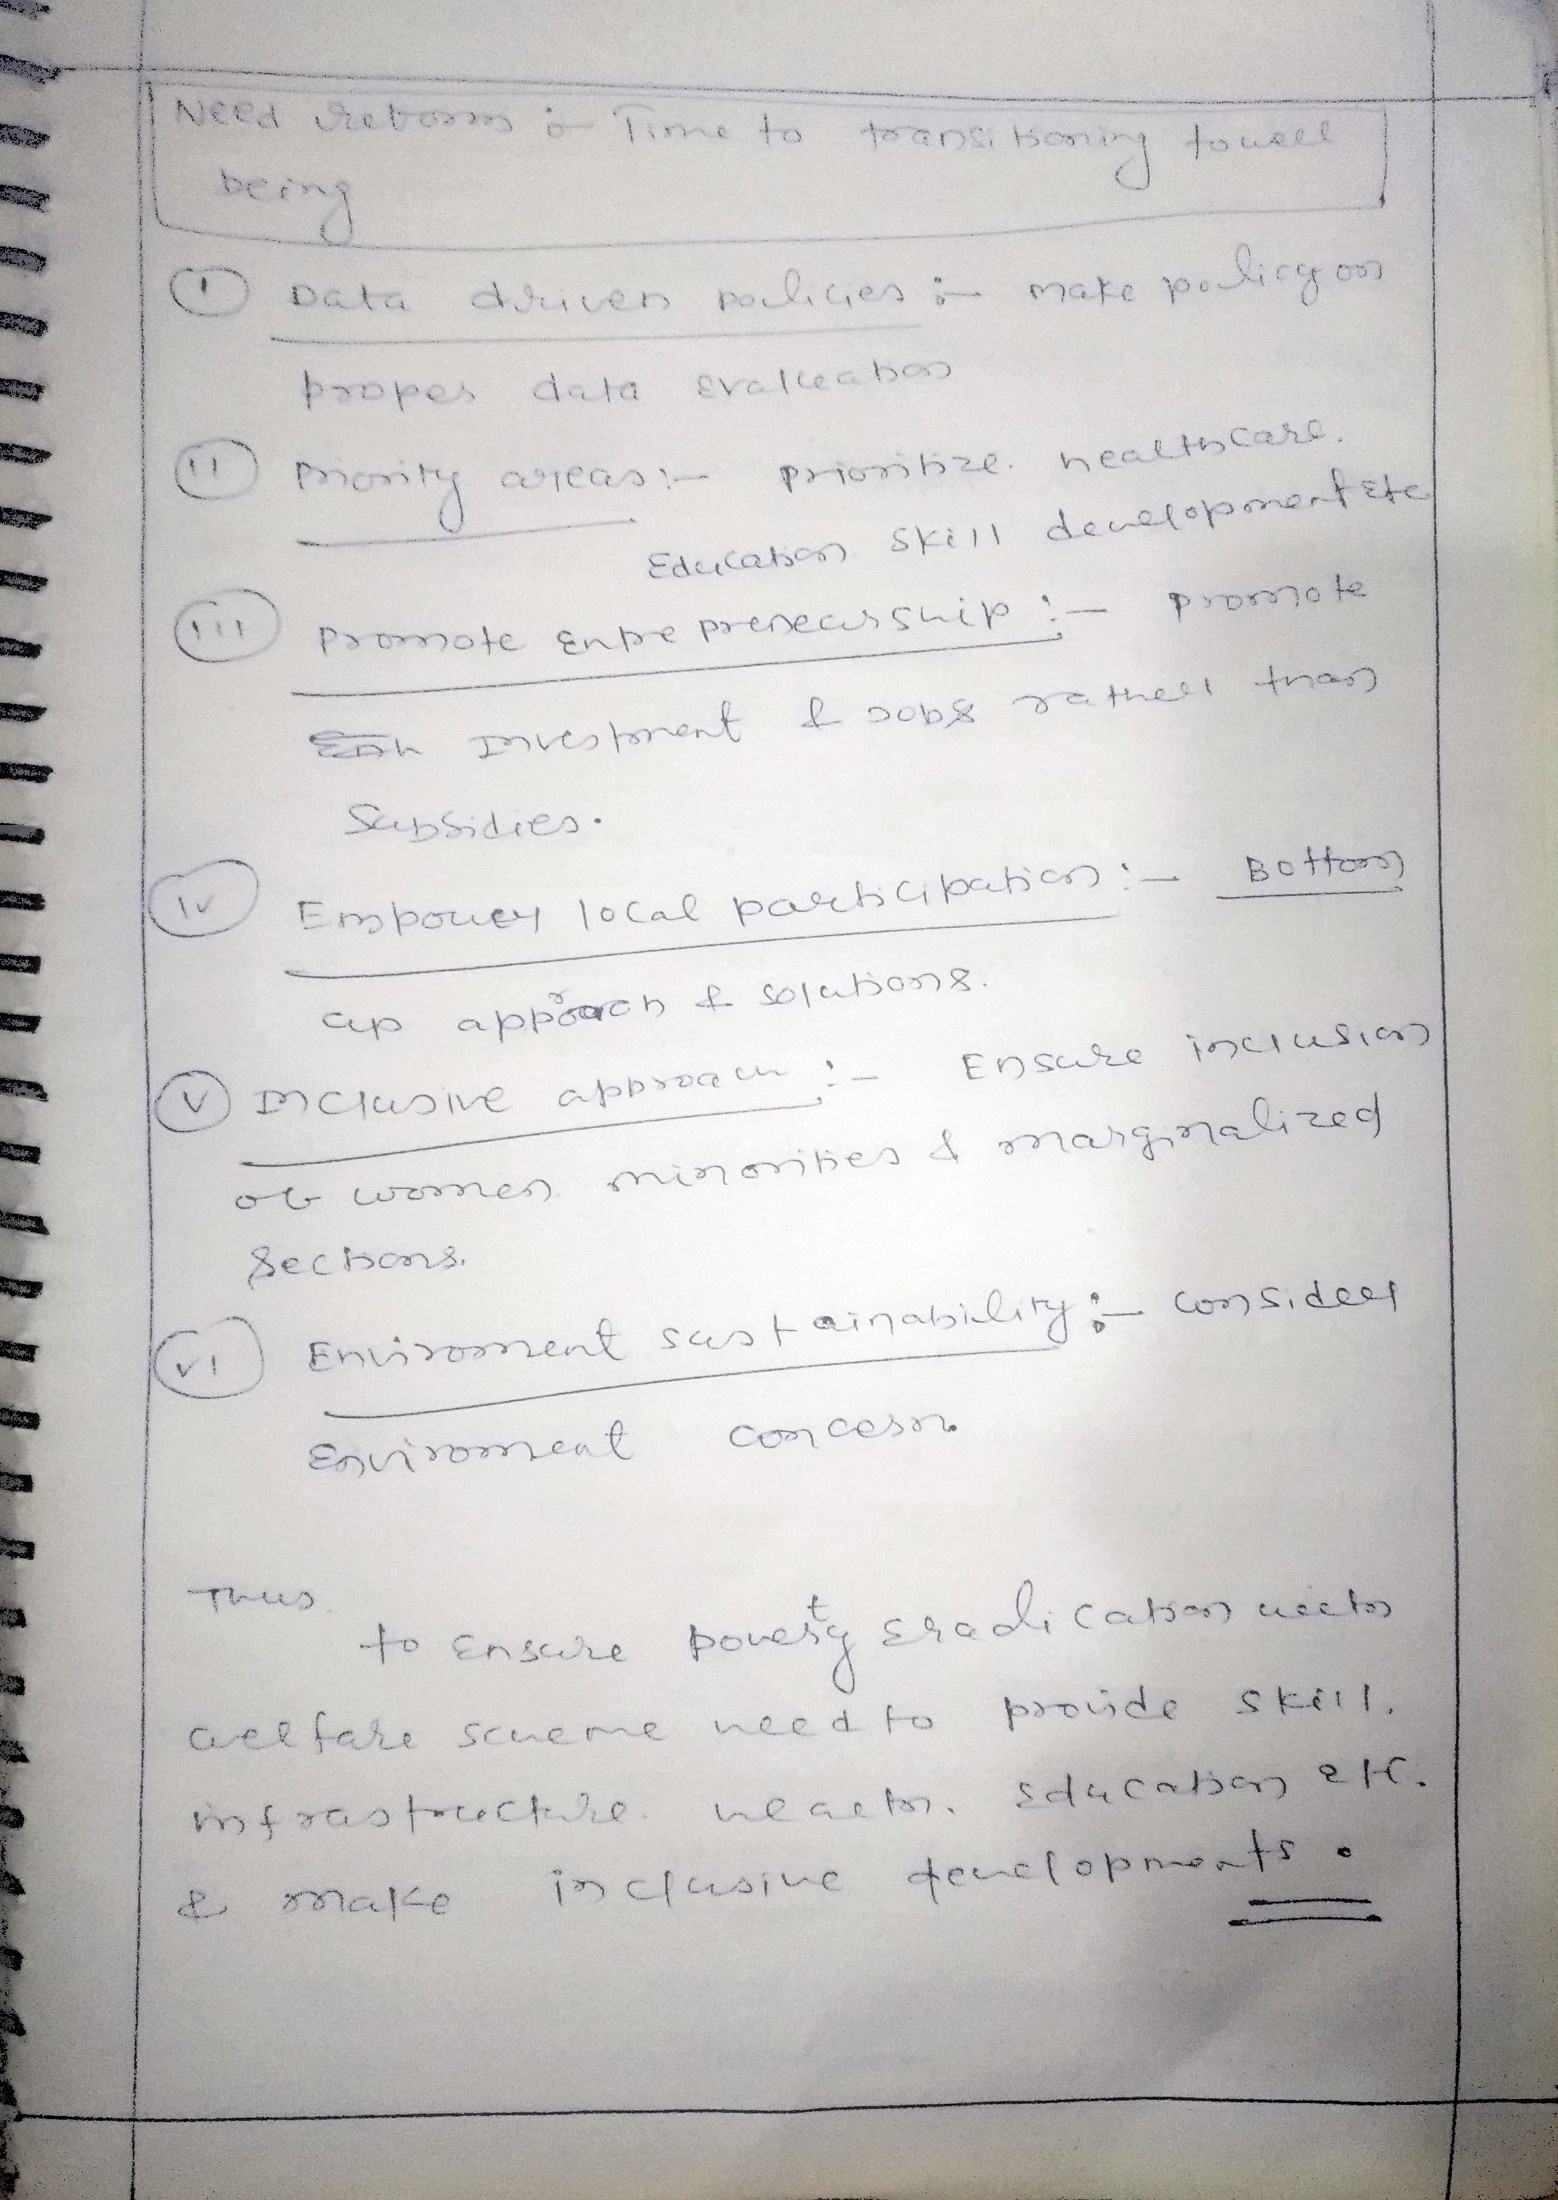 Need reforms :- Time to transitioning to well
being
(i) Data driven policies :- make policy on
proper data evaluation
(ii) Priority areas :- prioritize healthcare.
Education skill development etc
(iii) Promote Entrepreneurship :- promote
Investment & Jobs rather than
Subsidies.
(iv) Empower local participation :- Bottom
up approach & solutions.
(v) Inclusive approach :- Ensure inclusion
of women minorities & marginalized
Sections.
(vi) Enviroment sustainability :- consider
Enviroment concern.
Thus
to ensure poverty eradication
welfare scheme need to provide skill,
infrastructure. health. Education etc.
& make inclusive developments.